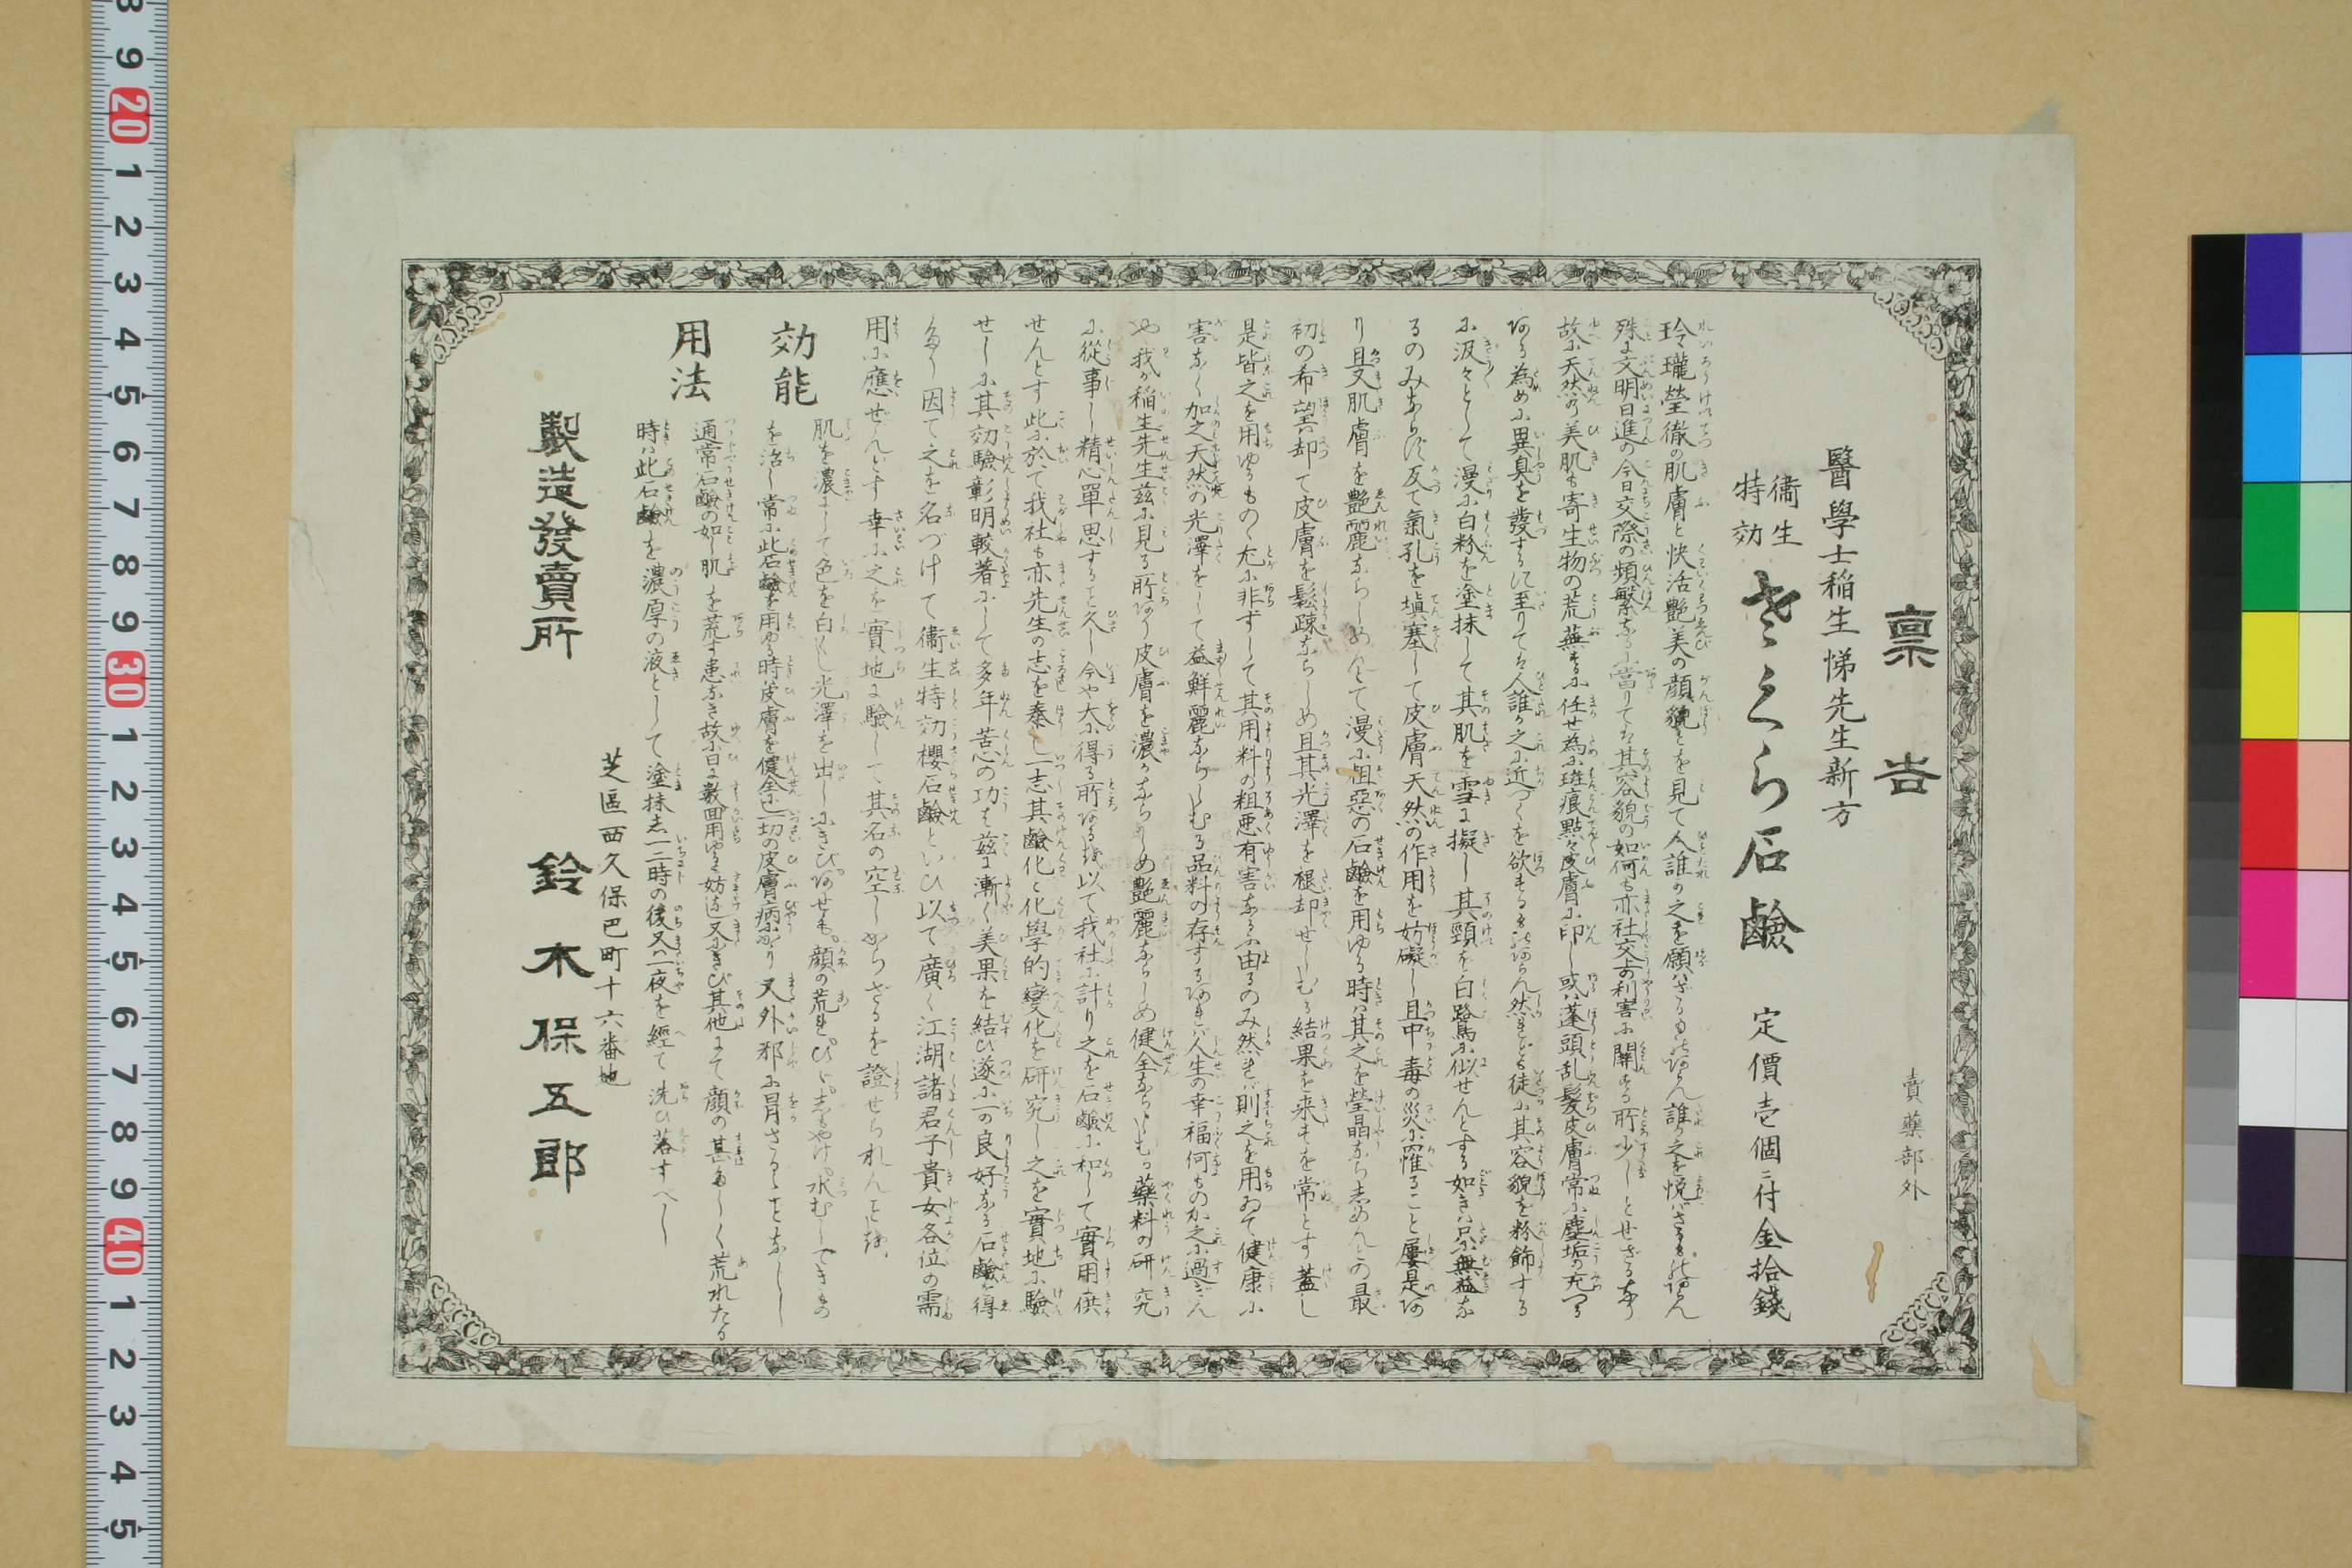 稟告
賣藥部外
醫學士稲生悌先生新方
衞生特効 さくら石鹼 定價壱個ニ付金拾錢
玲瓏瑩徹の肌膚と快活艶美の顔貌とを見て人誰か之を願ハざるもの阿らん誰か之を悦バざるもの阿らん
殊に文明日進の今日交際の頻繁なるに當りてハ其容貌の如何も亦社交上の利害に關する所少しとせざるなり
故に天然の美肌も寄生物の荒蕪するに任せ為に斑痕點々皮膚に印し或ハ蓬頭乱髪皮膚常に塵垢の充つる
阿る為めに異臭を發するに至りてハ人誰か之に近づくを欲するもの阿らん然れども徒に其容貌を粉飾する
に汲々として漫に白粉を塗抹して其肌を雪に擬し其頸を白鷺に似せんとする如きハ只に無益な
るのみあらに反て氣孔を塡塞して皮膚天然の作用を妨礙し且中毒の災に罹ること屢是阿
り且又肌膚を艶麗ならしめんとて漫に粗惡の石鹼を用ゆる時ハ其之を瑩晶ならしめんとの最
初の希望ハ却て皮膚を鬆疎ならしめ且其光澤を褪却せしむる結果を来すを常とす蓋し
是皆之を用ゆるものゝ尤に非ずして其用料の粗悪有害なるに由るのみ然れバ則之を用ゐて健康に
害なく加之天然の光澤をして益鮮麗ならしむる品料の存する阿れバ人生の幸福何ものか之に過ぎん
や我が稲生先生茲に見る所阿り皮膚を濃かならしめ艶麗ならしめ健全ならしむる藥料の研究
に從事し精心單思すること久し今や大に得る所阿るを以て我社に計り之を石鹼に和して實用に供
せんとす此に於て我社も亦先生の志を奉し一志其鹼化と化學的變化を研究し之を實地に驗
せしに其効驗彰明較著にして多年苦心の功も茲に漸く美果を結び遂に一の良好なる石鹼を得
たり因て之を名づけて衞生特効櫻石鹼といひ以て廣く江湖諸君子貴女各位の需
用に應ぜんとす幸に之を實地に驗して其名の空しからざるを證せられんことを
効能
肌を濃にして色を白くし光澤を出しにきび阿せも顔の荒れひゞ志もやけ水むしできもの
を治し常に此石鹼を用ゆる時ハ皮膚を健全に一切の皮膚病にかゝり又外邪に冒さるゝことなし
用法
通常石鹼の如し肌を荒す患なき故に日に數回用ゆるも妨なし又にきび其他にて顔の甚だしく荒れたる
時ハ此石鹼を濃厚の液として塗抹し一二時の後又ハ一夜を經て洗ひ落すべし
芝區西久保巴町十六番地
製造發賣所 鈴木保五郎